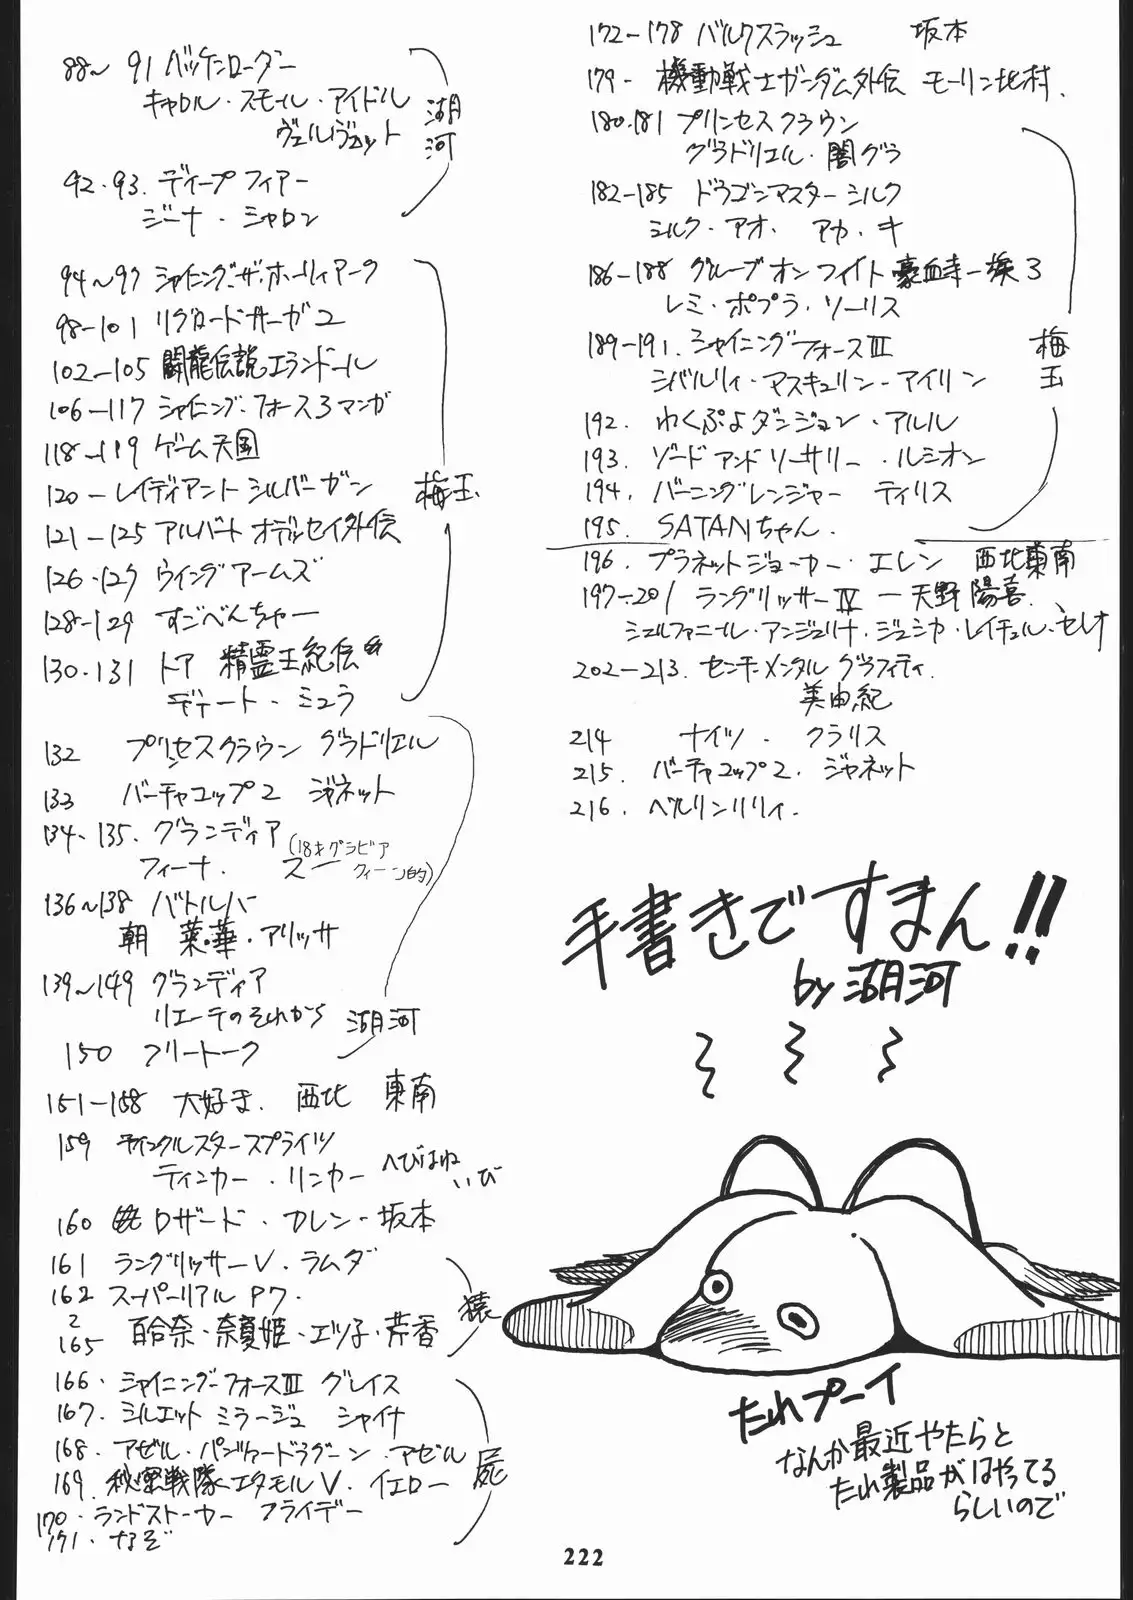 88～91 バッケンローダー
キャロル・スモール・アイドル
ヴェルヴェット
湖河
92・93. ディープフィアー
ジーナ・シャロン
94～97 シャイニング・ザ・ホーリィアーク
98-101 リグロードサーガ2
102-105 闘龍伝説エランドール
106-117 シャイニング・フォース3マンガ
118-119 ゲーム天国
120-レイディアントシルバーガン
梅玉
121-125 アルバートオデッセイ外伝
126・127 ウイングアームズ
128-129 すごべんちゃー
130・131 トア 精霊王紀伝
ディテート・ミュラ
132 プリンセスクラウン グラドリエル
133 バーチャコップ2 ジャネット
134-135. グランディア
フィーナ. スー(18才グラビアクィーン的)
136～138 バトルバ
朝 菜・華・アリッサ
139～149 グランディア
リエーテのそれから 湖河
150 フリートーク
151-158 大好き. 西北 東南
159 ティンクルスタースプライツ
ティンカー・リンカー へびはねいび
160 ロザード・カレン-坂本
161 ラングリッサーV・ラムダ
162 スーパーリアルP7.
〜
165 百合奈・奈夏姫・エツ子・芹香
猿
166・シャイニングフォースIII グレイス
167. シルエットミラージュ シャイナ
168. アゼル・パンツァードラグーン・アゼル
屍
169. 秘密戦隊メタモルV・イエロー
170・ランドストーカー フライデー
171・なぞ
172-178 バルクスラッシュ 坂本
179- 機動戦士ガンダム外伝 モーリン北村.
180・181 プリンセスクラウン
グラドリエル・闇グラ
182-185 ドラゴンマスターシルク
シルク・アオ. アカ・キ
186-188 グルーブオンファイト 豪血寺一族3
レミ・ポプラ・ソーリス
189-191. シャイニングフォースIII
シバルリィ・マスキュリン-アイリン
梅玉
192. わくぷよダンジョン・アルル
193. ソードアンドソーサリー・ルシオン
194. バーニングレンジャー ティリス
195. SATANちゃん.
196. プラネットジョーカー・エレン 西北東南
197-201 ラングリッサーIV-天野陽喜.
シェルファニール・アンジェリナ・ジェシカ・レイチェル・セレナ
202-213. センチメンタルグラフィティ.
美由紀
214 ナイツ・クラリス
215. バーチャコップ2. ジャネット
216. ベルリンリリィ.
手書きですまん!!
by 湖河
たれプーイ
なんか最近やたらと
たれ製品がはやってる
らしいので
222